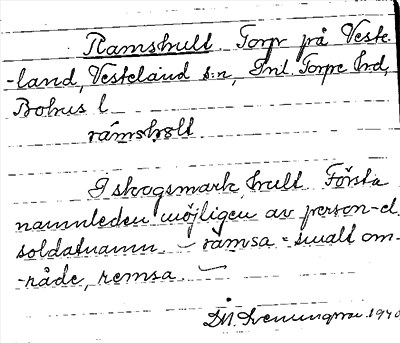 Ramshult Torp på Veste-
-land, Vesteland s:n, Inl. Torpe hrd,
Bohus l
ramshølt
I skogsmark, hult. Första
namnleden möjligen av person- el.
soldatnamn – ramsa = smalt om-
-råde, remsa. –
1940